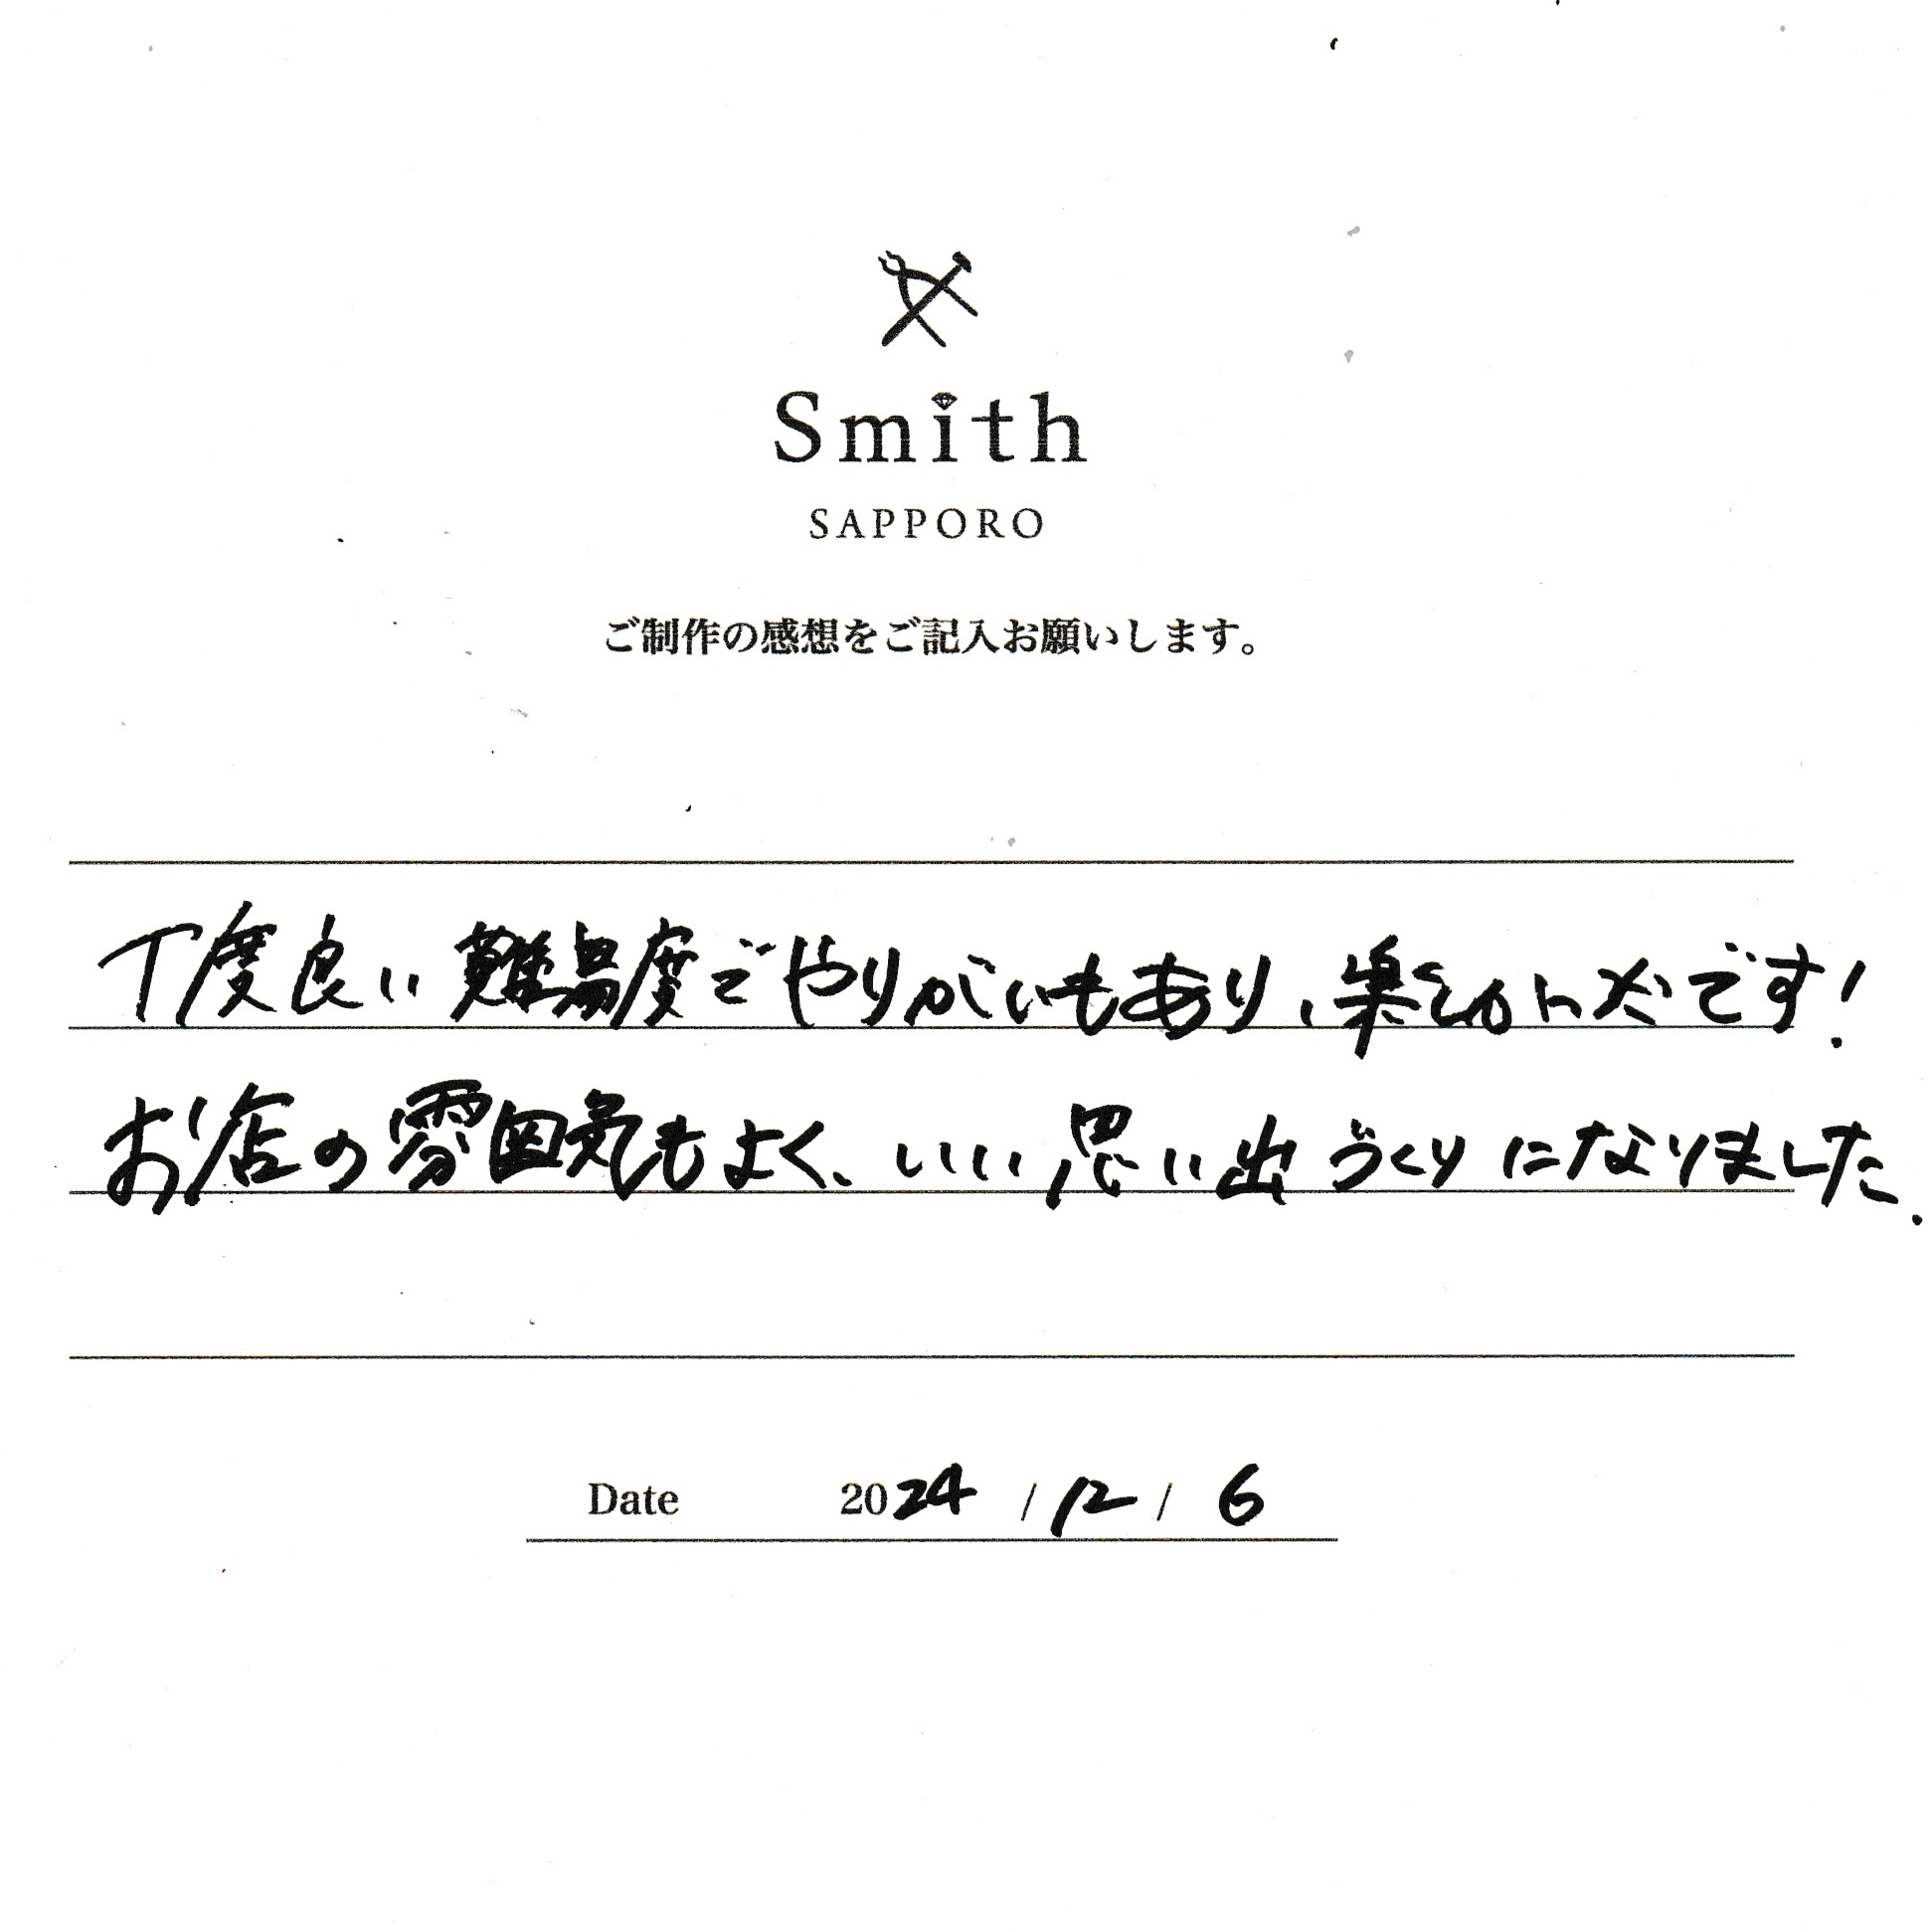 Smith
SAPPORO
ご制作の感想をご記入お願いします。
丁度良い難易度でやりがいもあり、楽しかったです!
お店の雰囲気もよく、いい思い出づくりになりました.
Date 2024 / 12 / 6